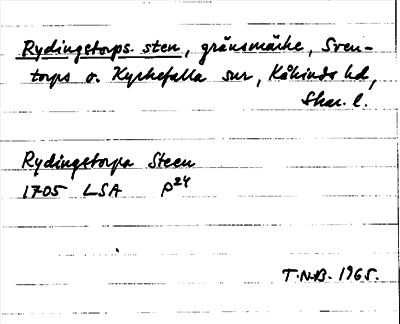 Rydingstorps sten, gränsmärke, Sven-
torps o. Kyrkefalla snr, Kåkinds hd,
Skar. l.
Rydingstorpa Steen
1705 LSA P24
T.N.B. 1965.